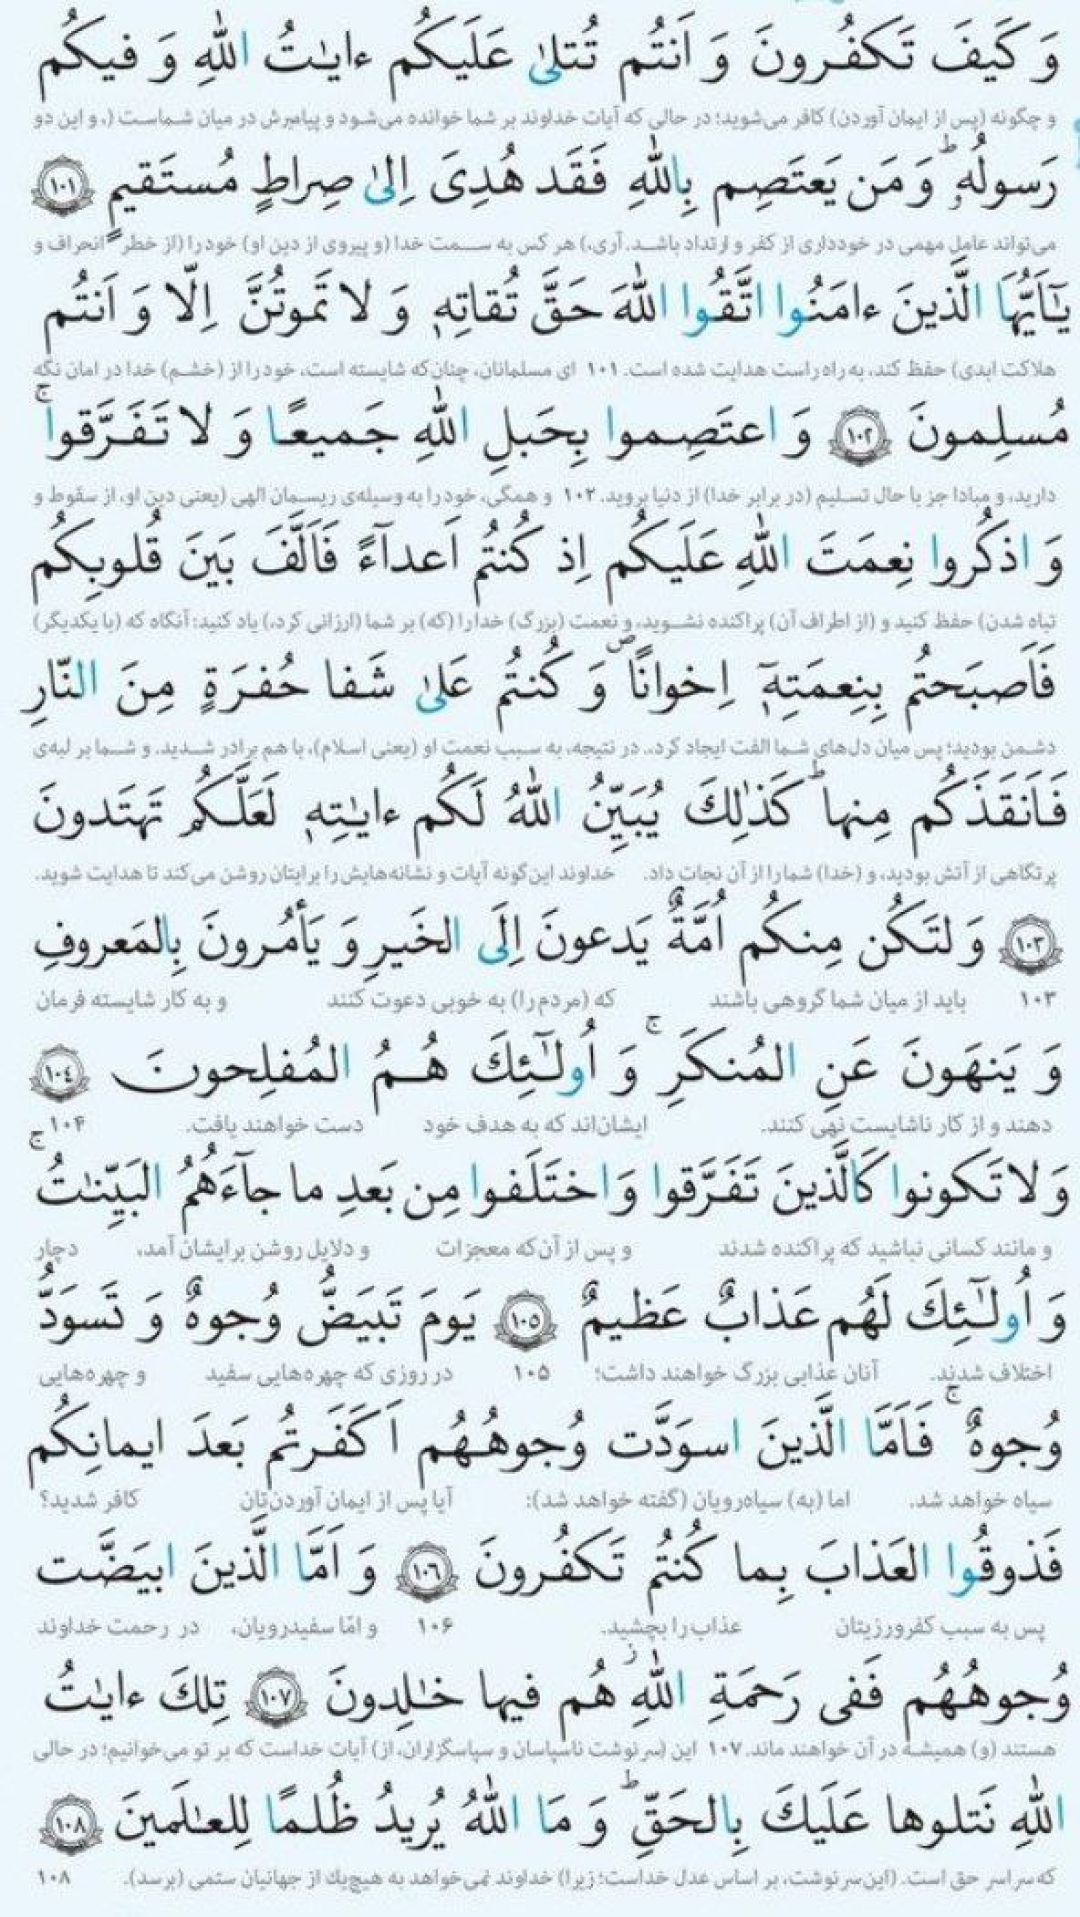 وَ كَيفَ تَكفُرونَ وَ اَنتُم تُتلىٰ عَلَيكُم ءايـٰتُ اللهِ وَ فيكُم
و چگونه (پس از ایمان آوردن) کافر می‌شوید؛ در حالی که آیات خداوند بر شما خوانده می‌شود و پیامبرش در میان شماست (، و این دو
رَسولُهٗ ؕ وَ مَن يَعتَصِم بِاللهِ فَقَد هُدِىَ اِلىٰ صِراطٍ مُستَقيمٍ ﴿۱۰۱﴾
می‌تواند عامل مهمی در خودداری از کفر و ارتداد باشد. آری،) هر کس به سمت خدا (و پیروی از دین او) خود را (از خطر انحراف و
يـٰٓاَيُّهَا الَّذينَ ءامَنُوا اتَّقُوا اللهَ حَقَّ تُقاتِهٖ وَ لا تَموتُنَّ اِلّا وَ اَنتُم
هلاکت ابدی) حفظ کند، به راه راست هدایت شده است. ۱۰۱ ای مسلمانان، چنان‌که شایسته است، خود را از (خشم) خدا در امان نگه
مُسلِمونَ ﴿۱۰۲﴾ وَ اعتَصِموا بِحَبلِ اللهِ جَميعًا وَ لا تَفَرَّقوا ۚ
دارید، و مبادا جز با حال تسلیم (در برابر خدا) از دنیا بروید. ۱۰۲ و همگی، خود را به وسیله‌ی ریسمان الهی (یعنی دین او، از سقوط و
وَ اذكُروا نِعمَتَ اللهِ عَلَيكُم اِذ كُنتُم اَعدآءً فَاَلَّفَ بَينَ قُلوبِكُم
تباه شدن) حفظ کنید و (از اطراف آن) پراکنده نشوید، و نعمت (بزرگ) خدا را (که) بر شما (ارزانی کرد،) یاد کنید؛ آنگاه که (با یکدیگر)
فَاَصبَحتُم بِنِعمَتِهٖٓ اِخوانًا ۖ وَ كُنتُم عَلىٰ شَفا حُفرَةٍ مِنَ النّارِ
دشمن بودید؛ پس میان دل‌های شما الفت ایجاد کرد، در نتیجه، به سبب نعمت او (یعنی اسلام)، با هم برادر شدید. و شما بر لبه‌ی
فَاَنقَذَكُم مِنها ؕ كَذٰلِكَ يُبَيِّنُ اللهُ لَكُم ءايـٰتِهٖ لَعَلَّكُم تَهتَدونَ
پرتگاهی از آتش بودید، و (خدا) شما را از آن نجات داد. خداوند این‌گونه آیات و نشانه‌هایش را برایتان روشن می‌کند تا هدایت شوید.
﴿۱۰۳﴾ وَ لتَكُن مِنكُم اُمَّةٌ يَدعونَ اِلَى الخَيرِ وَ يَأمُرونَ بِالمَعروفِ
۱۰۳ باید از میان شما گروهی باشند که (مردم را) به خوبی دعوت کنند و به کار شایسته فرمان
وَ يَنهَونَ عَنِ المُنكَرِ ۚ وَ اُولـٰٓئِكَ هُمُ المُفلِحونَ ﴿۱۰٤﴾
دهند و از کار ناشایست نهی کنند. ایشان‌اند که به هدف خود دست خواهند یافت. ۱۰۴
وَ لا تَكونوا كَالَّذينَ تَفَرَّقوا وَ اختَلَفوا مِن بَعدِ ما جآءَهُمُ البَيِّنـٰتُ ۚ
و مانند کسانی نباشید که پراکنده شدند و پس از آن‌که معجزات و دلایل روشن برایشان آمد، دچار
وَ اُولـٰٓئِكَ لَهُم عَذابٌ عَظيمٌ ﴿۱۰۵﴾ يَومَ تَبيَضُّ وُجوهٌ وَ تَسوَدُّ
اختلاف شدند. آنان عذابی بزرگ خواهند داشت؛ ۱۰۵ در روزی که چهره‌هایی سفید و چهره‌هایی
وُجوهٌ ۚ فَاَمَّا الَّذينَ اسوَدَّت وُجوهُهُم اَكَفَرتُم بَعدَ ايمانِكُم
سیاه خواهد شد. اما (به) سیاه‌رویان (گفته خواهد شد): آیا پس از ایمان آوردن‌تان کافر شدید؟
فَذوقُوا العَذابَ بِما كُنتُم تَكفُرونَ ﴿۱۰٦﴾ وَ اَمَّا الَّذينَ ابيَضَّت
پس به سبب کفرورزیتان عذاب را بچشید. ۱۰۶ و امّا سفیدرویان، در رحمت خداوند
وُجوهُهُم فَفى رَحمَةِ اللهِ ؗ هُم فيها خـٰلِدونَ ﴿۱۰۷﴾ تِلكَ ءايـٰتُ
هستند (و) همیشه در آن خواهند ماند. ۱۰۷ این (سرنوشت ناسپاسان و سپاسگزاران، از) آیات خداست که بر تو می‌خوانیم؛ در حالی
اللهِ نَتلوها عَلَيكَ بِالحَقِّ ؕ وَ مَا اللهُ يُريدُ ظُلمًا لِلعـٰلَمينَ ﴿۱۰۸﴾
که سراسر حق است. (این سرنوشت، بر اساس عدل خداست؛ زیرا) خداوند نمی‌خواهد به هیچ‌یک از جهانیان ستمی (برسد). ۱۰۸